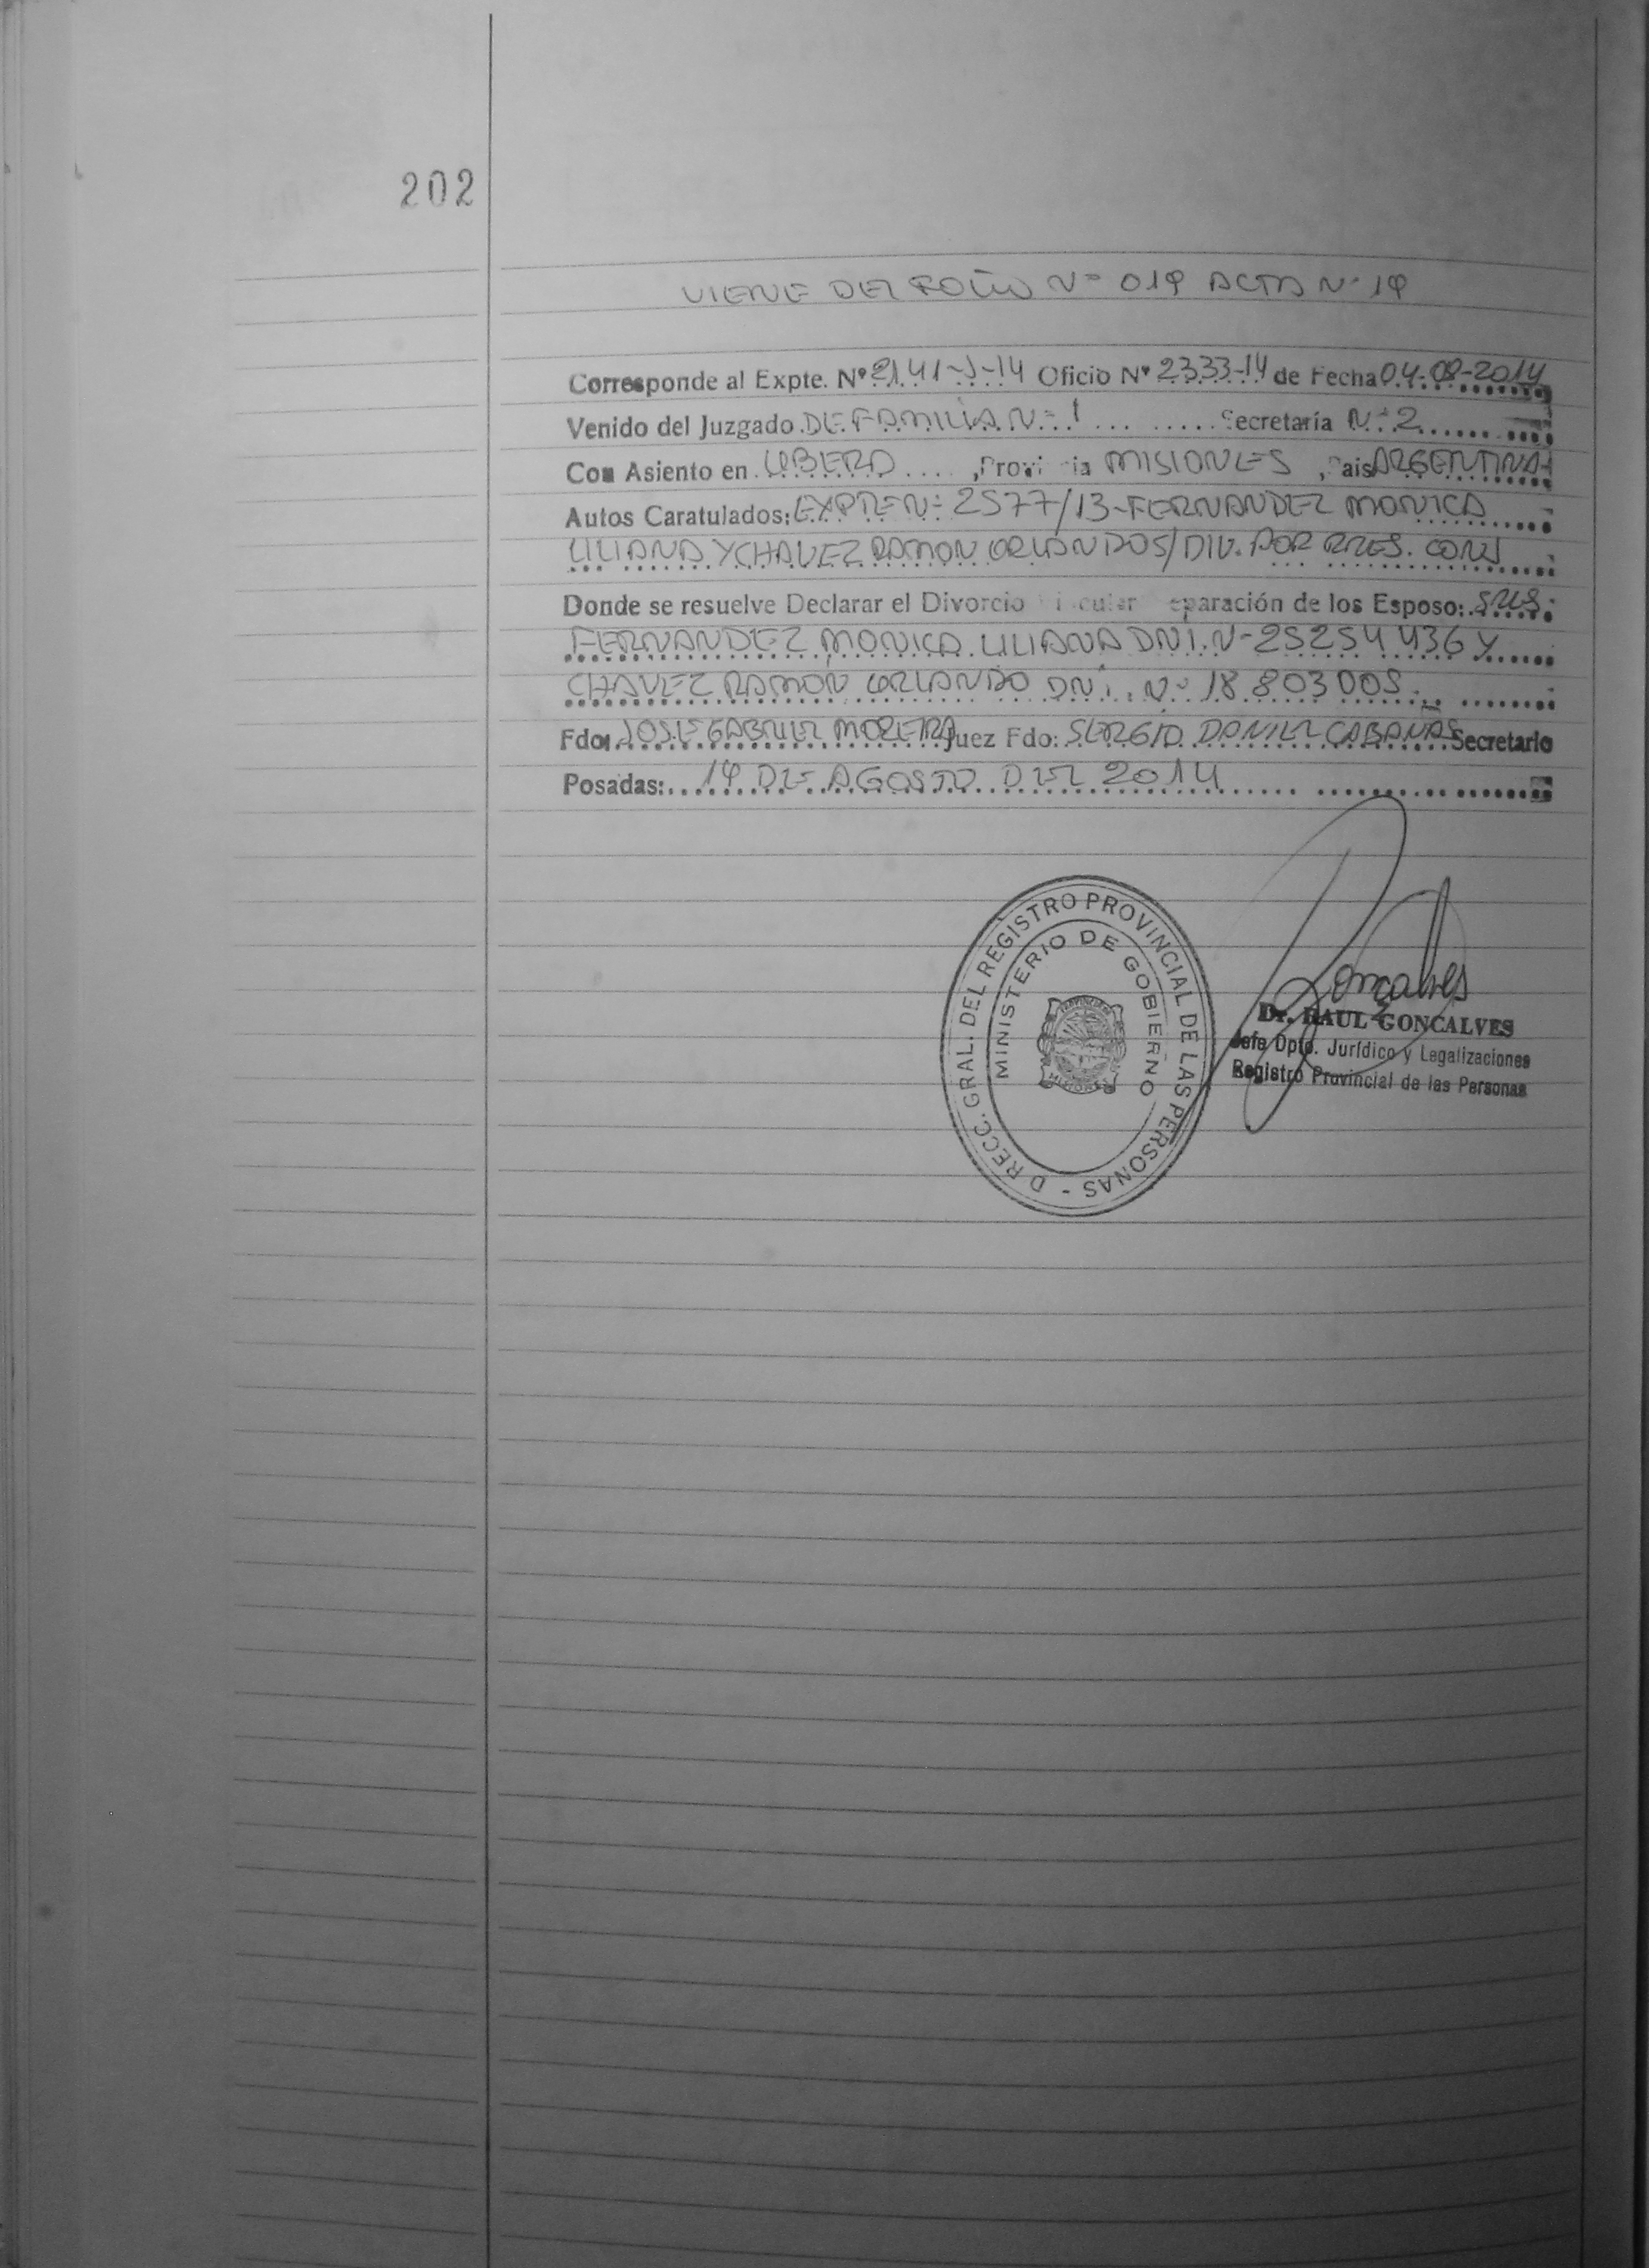 202
VIENE DEL FOLIO N= 019 ACTA N° 19
Corresponde al Expte. Nº 2141-J-14 Oficio Nº 2333-14 de Fecha 04-08-2014
Venido del Juzgado DE FAMILIA N= 1 Secretaría N= 2
Con Asiento en OBERA, Provincia MISIONES, Pais ARGENTINA
Autos Caratulados: EXPTE N= 2577/13-FERNANDEZ MONICA
LILIANA Y CHAVEZ RAMON ORLANDO S/DIV. POR PRES. CONJ
Donde se resuelve Declarar el Divorcio Vincular Separación de los Esposo: SRES:
FERNANDEZ MONICA LILIANA DNI. N-25254436 Y
CHAVEZ RAMON ORLANDO DNI. N= 18 803 005
Fdo: JOSE GABRIEL MOREIRA Juez Fdo: SERGIO DANIEL CABANAS Secretario
Posadas: 19 DE AGOSTO DEL 2014
DRECC. GRAL. DEL REGISTRO PROVINCIAL DE LAS PERSONAS -
MINISTERIO DE GOBIERNO
PROVINCIA
MISIONES
Gonçalves
Dr. RAUL GONCALVES
Jefe Dpto. Jurídico y Legalizaciones
Registro Provincial de las Personas